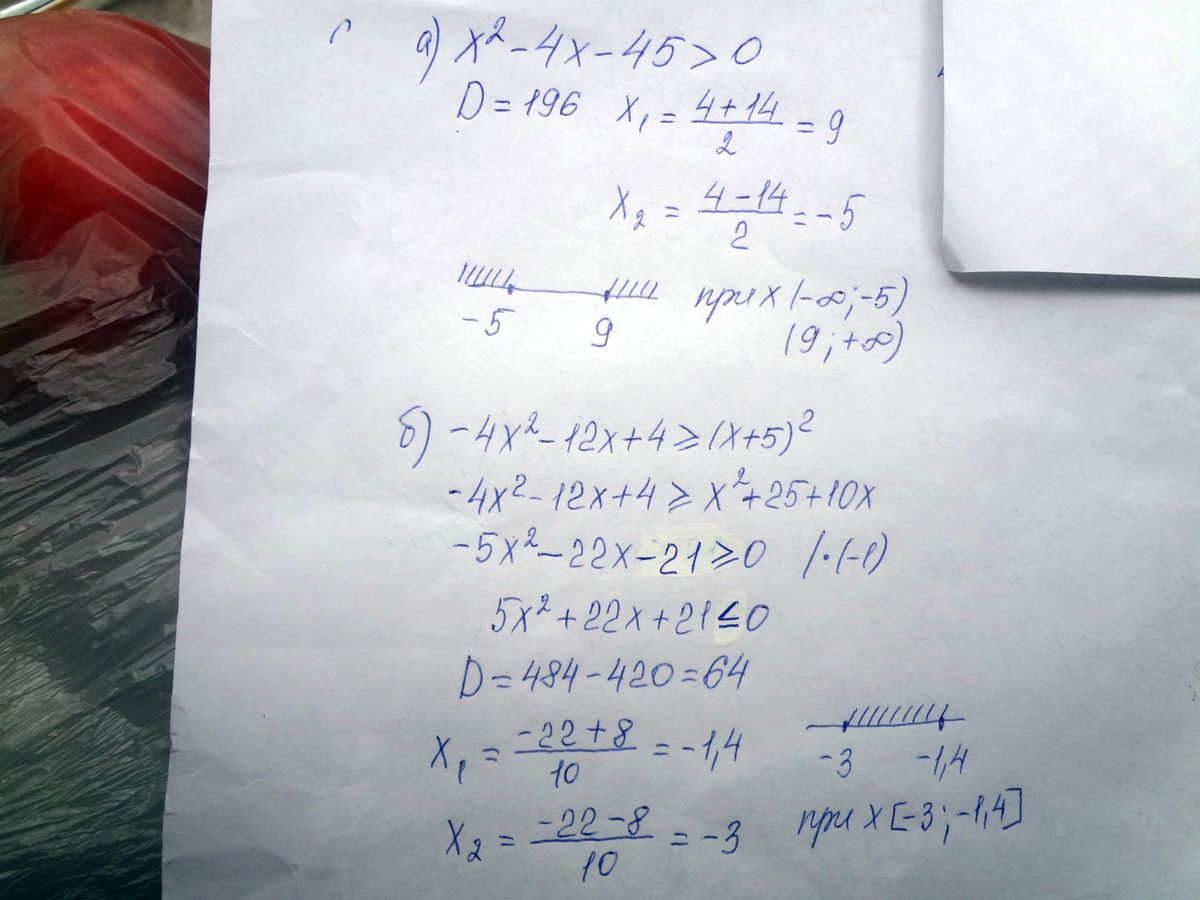 а) x² - 4x - 45 > 0
D = 196 x₁ = (4 + 14)/2 = 9
x₂ = (4 - 14)/2 = -5
-5 9 при x (-∞; -5)
(9; +∞)
б) -4x² - 12x + 4 ≥ (x+5)²
-4x² - 12x + 4 ≥ x² + 25 + 10x
-5x² - 22x - 21 ≥ 0 /·(-1)
5x² + 22x + 21 ≤ 0
D = 484 - 420 = 64
x₁ = (-22 + 8)/10 = -1,4
-3 -1,4
x₂ = (-22 - 8)/10 = -3
при x [-3; -1,4]